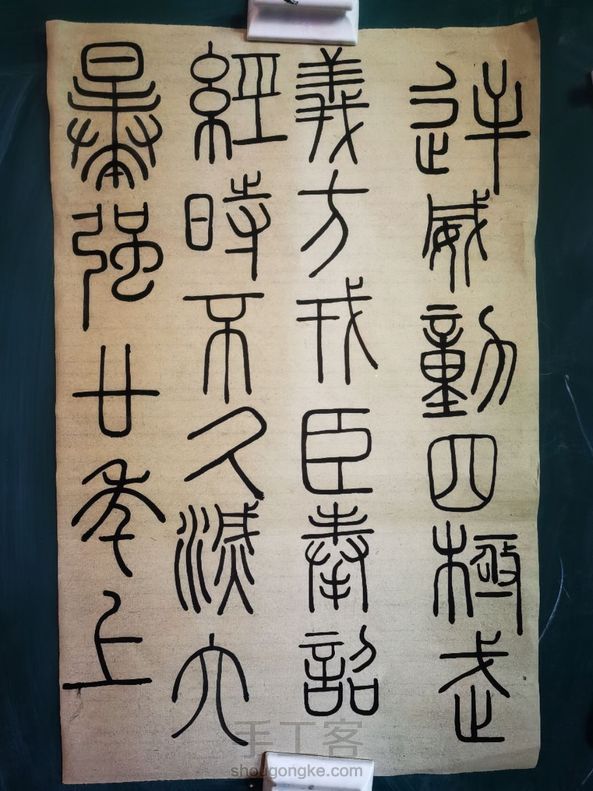 逆威動四極武
義方戎臣奉詔
經時不久滅六
暴强廿年上
手工客
shougongke.com